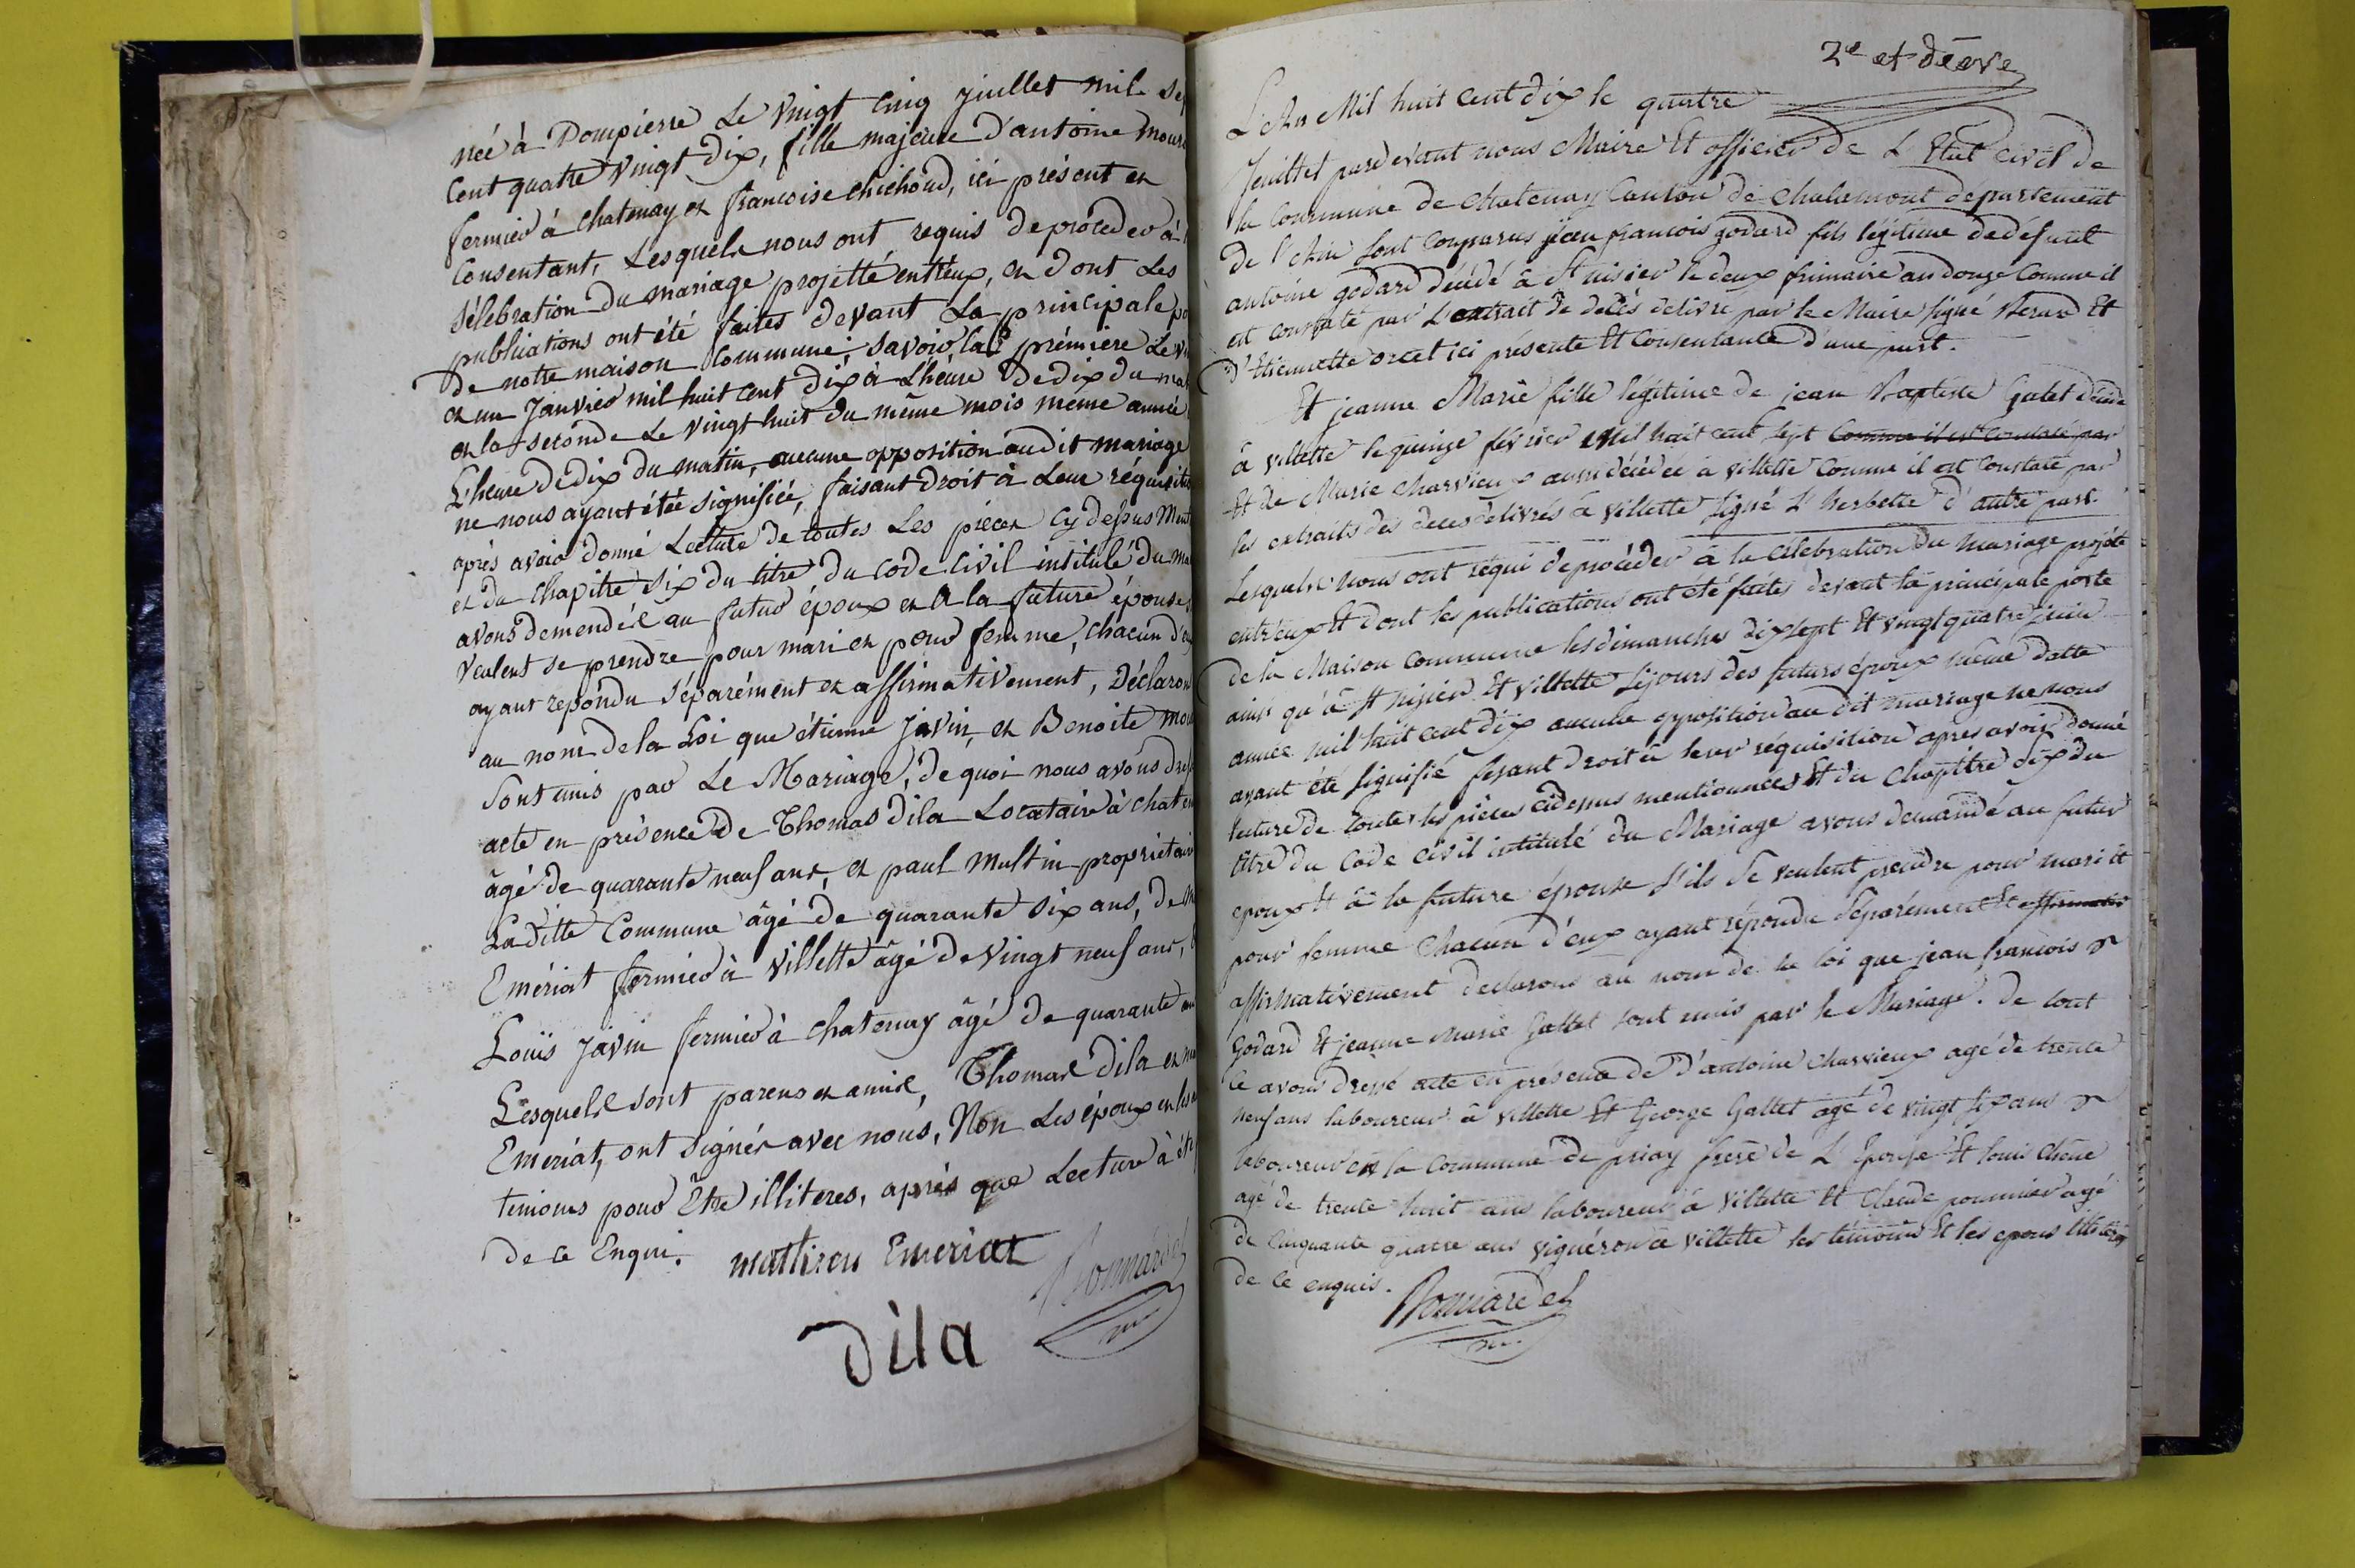 née à Dompierre Le vingt cinq juillet mil sep
Cent quatre vingt dix, fille majeure d'antoine mour
fermier à Chatenay et francoise chichoud, ici présent et
Consentant, Lesquels nous ont requis de procéder à
sélébration du mariage projetté entreux, et dont Les
publications ont été faites devant La principale po
de notre maison Commune; savoir la prémière Le vin
et un Janvier mil huit cent dix à L'heure de dix du mat
et la seconde Le vingt huit du même mois même année
L'heure de dix du matin, aucune opposition audit mariage
ne nous ayant étée signifiée, faisant droit à Leur réquisition
aprés avoir donné Lecture de toutes Les pieces cy dessus ment
et du chapitre six du titre du code civil intitulé du ma
avons demendée au futur époux et à la future épouse
veulent se prendre pour mari et pour femme, chacun d'eux
ayant repondu séparément et affirmativement, Déclarons
au nom de la Loi que étienne Javin, et Benoite mou
sont unis par Le Mariage, de quoi nous avons dressé
acte en présence de Thomas Dila Locataire à chaten
âgé de quarante neuf ans, et paul multin propriétaire
Laditte Commune âgé de quarante six ans, de m
Emériat fermier à villette âgé de vingt neuf ans,
Louis Javin fermier à chatenay âgé de quarante an
Lesquels sont parens et amis, Thomas Dila et m
Emeriat, ont signés avec nous, Non Les époux et les a
temoins pour Être illiteres, aprés que Lecture à été
de ce Enqui.
mathieu Emeriat
Bonnardel
Dila
2e et
L'An Mil huit cent dix le quatre
Jeuillet pardevant nous Maire Et officier de L'Etat civil de
la Commune de Chatenay Canton de Chalamont departement
de l'Ain sont comparus jean francois godard fils légitime de défunt
antoine godard décédé à St nisier le deux frimaire an douze comme il
est constaté par L'extrait de décès delivré par le Maire signé Et
d'Etiennette orcet ici présente Et Consentante d'une part.
Et jeanne Marie fille légitime de jean Baptiste Gallet décédé
à villette le quinze février mil huit cent sept Comme il est constaté par
Et de Marie Charvieux aussi décédée à villette Comme il est constaté par
les extraits des deces delivrés à Villette signé L'herbette d'autre part.
Lesquels nous ont réqui de procéder à la célebration du mariage projeté
entr'eux Et dont les publications ont été faites devant la principale porte
de la Maison commune les dimanches dix sept Et vingt quatre juin
ainsi qu'à St Nisier Et Villette séjours des futurs époux même datte
année mil huit cent dix aucune opposition au dit mariage ne nous
ayant été signifié fesant droit à leur réquisition après avoir donné
lecture de toutes les pièces cidessus mentionnées Et du Chapitre six du
titre du Code civil intitulé du Mariage avons demandé au futur
epoux Et à la future épouse s'ils se veulent prendre pour mari Et
pour femme Chacun d'eux ayant répondu séparément Et affirmativ
affirmativement declarons au nom de la loi que jean francois
Godard Et jeanne Marie Gallet sont unis par le Mariage. de tout
ce avons dressé acte en présence de D'antoine Charvieux agé de trente
neuf ans laboureur à villette Et George Gallet agé de vingt six ans
laboureur en la commune de priay frere de L'Epouse Et louis Chêne
agé de trente huit ans laboureur à Villette Et Claude pommier agé
de Cinquante quatre ans vigneron à Villette les témoins Et les epoux illiteres
de ce enquis.
Bonnardel